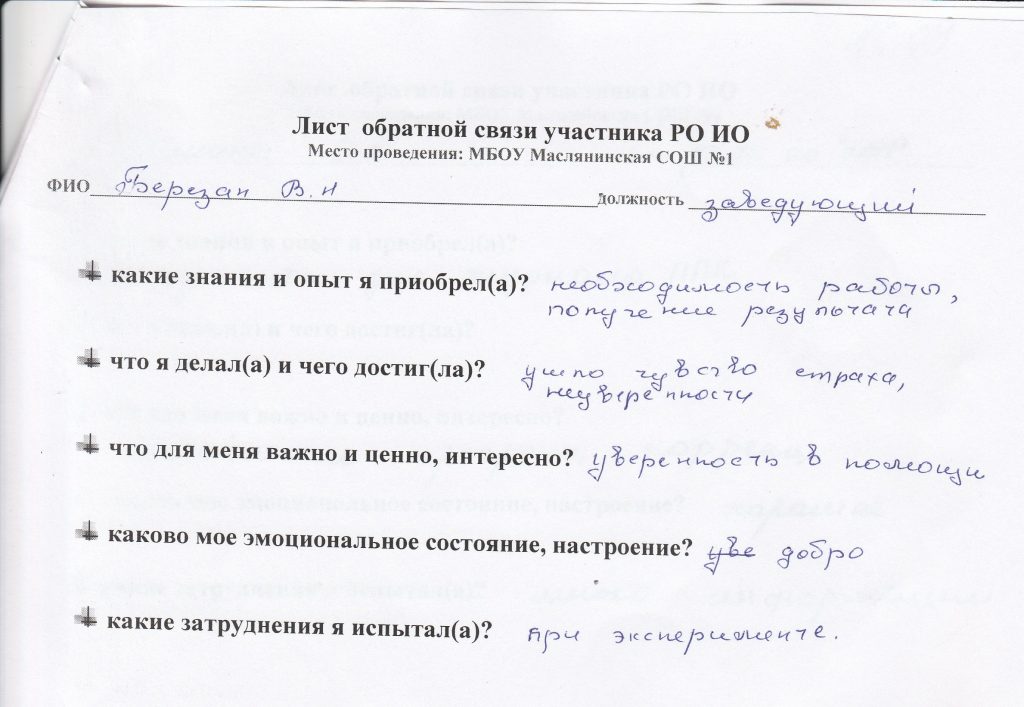 Лист обратной связи участника РО ИО
Место проведения: МБОУ Маслянинская СОШ №1
ФИО Березан В. Н должность заведующий
какие знания и опыт я приобрел(а)? необходимость работы,
получение результата
что я делал(а) и чего достиг(ла)? ушло чувство страха,
неуверенности
что для меня важно и ценно, интересно? уверенность в помощи
каково мое эмоциональное состояние, настроение? уве добро
какие затруднения я испытал(а)? при эксперименте.